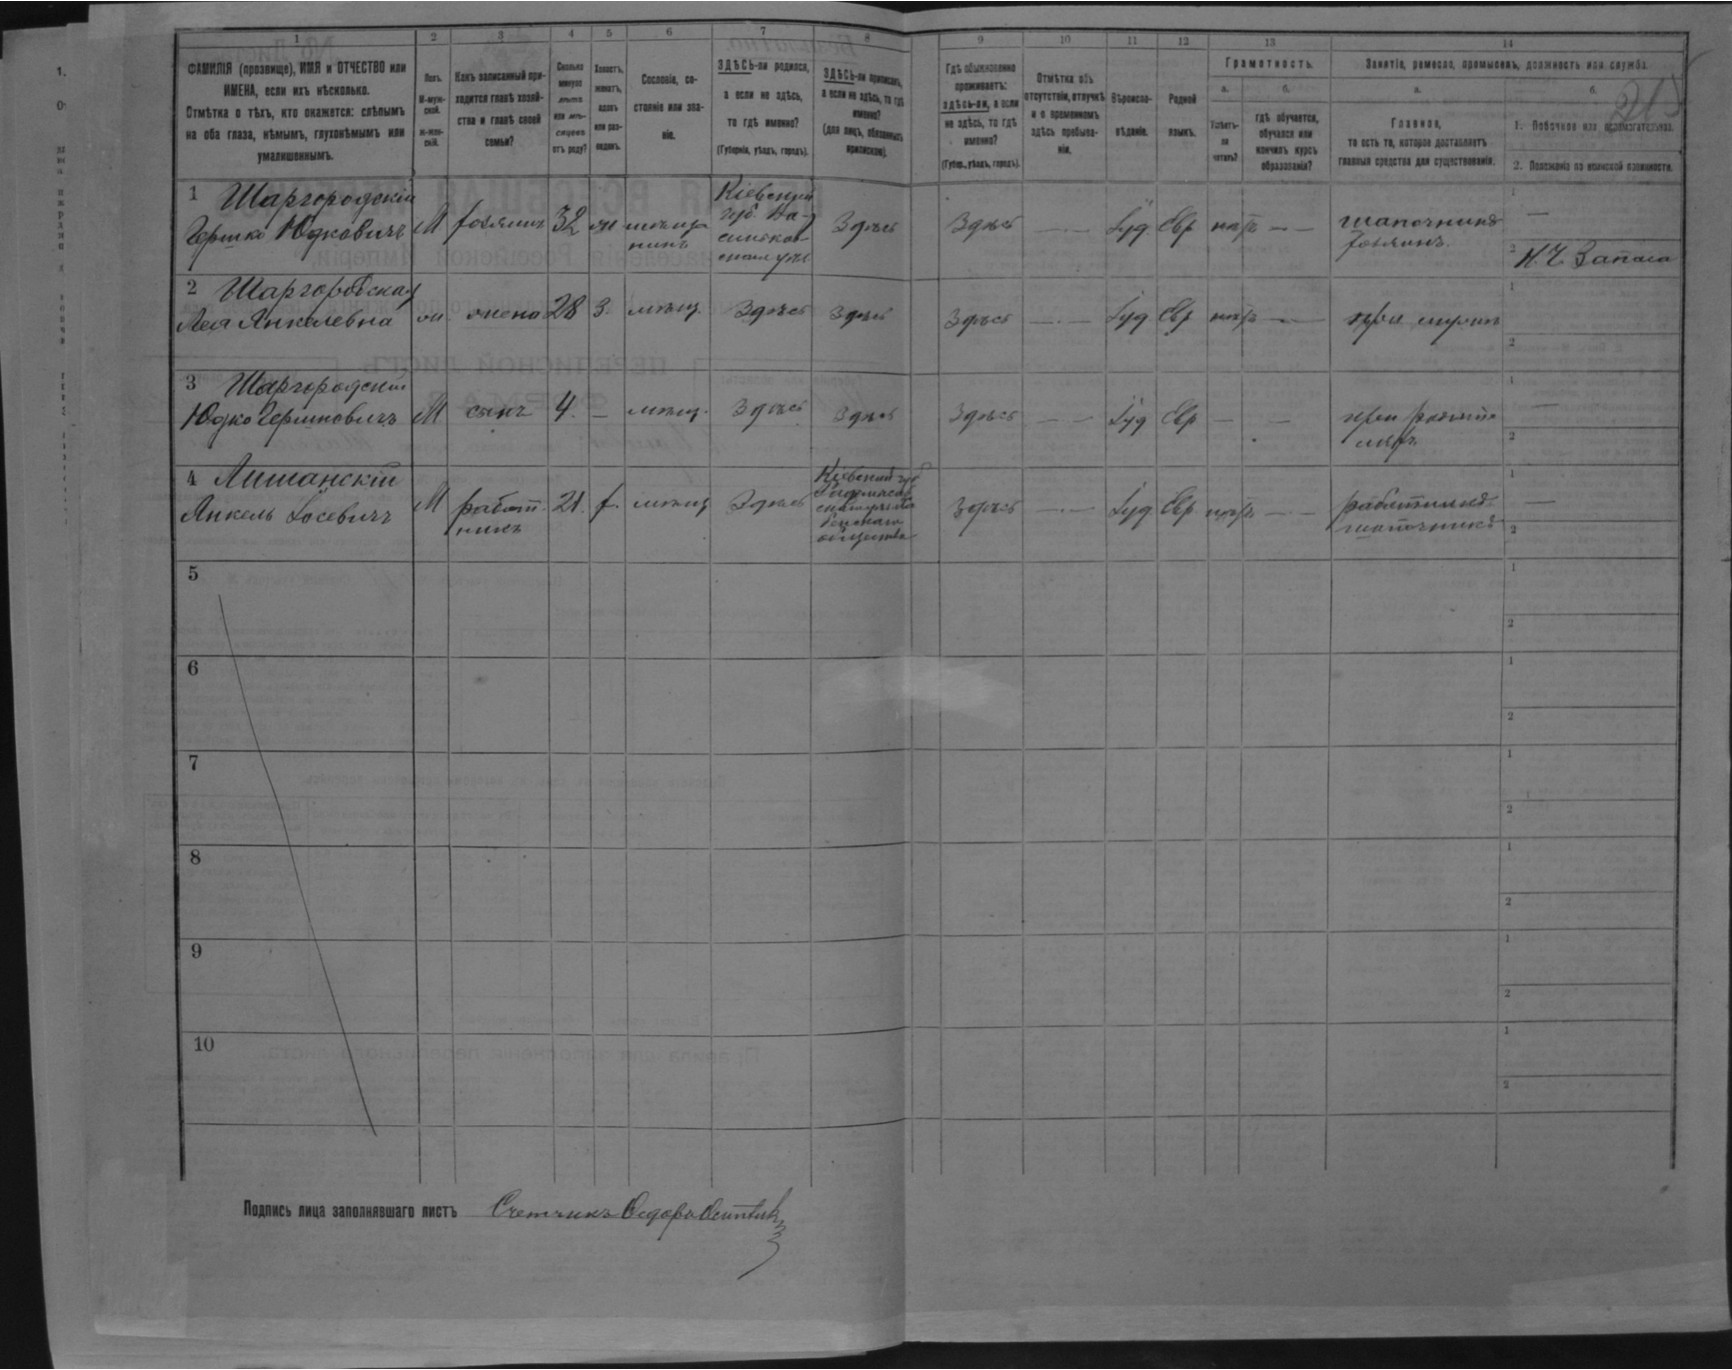 1 2 3 4 5 6 7 8 9 10 11 12 13 14
ФАМИЛІЯ (прозвище), ИМЯ и ОТЧЕСТВО или
ИМЕНА, если ихъ нѣсколько.
Отмѣтка о тѣхъ, кто окажется: слѣпымъ
на оба глаза, нѣмымъ, глухонѣмымъ или
умалишеннымъ.
Полъ.
М-муж-
ской.
ж-жен-
скій.
Какъ записанный при-
ходится главѣ хозяй-
ства и главѣ своей
семьи?
Сколько
минуло
лѣтъ
или мѣ-
сяцевъ
отъ роду?
Холостъ,
женатъ,
вдовъ
или раз-
веденъ.
Сословіе, со-
стояніе или зва-
ніе.
ЗДѢСЬ-ли родился,
а если не здѣсь,
то гдѣ именно?
(Губернія, уѣздъ, городъ).
ЗДѢСЬ-ли приписанъ,
а если не здѣсь, то гдѣ
именно?
(для лицъ, обязанныхъ
припискою).
Гдѣ обыкновенно
проживаетъ:
здѣсь-ли, а если
не здѣсь, то гдѣ
именно?
(Губер., уѣздъ, городъ).
Отмѣтка объ
отсутствіи, отлучкѣ
и о временномъ
здѣсь пребыва-
ніи.
Вѣроиспо-
вѣданіе.
Родной
языкъ.
Грамотность.
а.
Умѣетъ-
ли
читать?
б.
гдѣ обучается,
обучался или
кончилъ курсъ
образованія?
Занятіе, ремесло, промыселъ, должность или служба.
а.
Главное,
то есть то, которое доставляетъ
главныя средства для существованія.
б.
1. Побочное или вспомогательное.
2. Положеніе по воинской повинности.
215
1 Шаргородскій
Гершко Юдковичъ М хозяинъ 32 ж мѣща-
нинъ
Кіевской
губ. Ва-
сильков-
скаго уѣз
Здѣсь Здѣсь — Іуд. Евр —
шапочникъ
хозяинъ
1 —
2 Н. Ч. Запаса
2 Шаргородская
Лея Янкелевна ж. жена 28 З. мѣщ. Здѣсь Здѣсь Здѣсь — Іуд Евр — при мужѣ
1
2
3 Шаргородскій
Юдко Гершковичъ М сынъ 4. — мѣщ. Здѣсь Здѣсь Здѣсь — Іуд Евр — —
при родите-
ляхъ
1 —
2
4 Лишанскій
Янкель Іосевичъ М работ-
никъ
21. х. мѣщ Здѣсь
Кіевской губ
общества
Здѣсь — Іуд Евр —
работникъ
шапочникъ
1 —
2
5
1
2
6
1
2
7
1
2
8
1
2
9
1
2
10
1
2
Подпись лица заполнявшаго листъ Счетчикъ